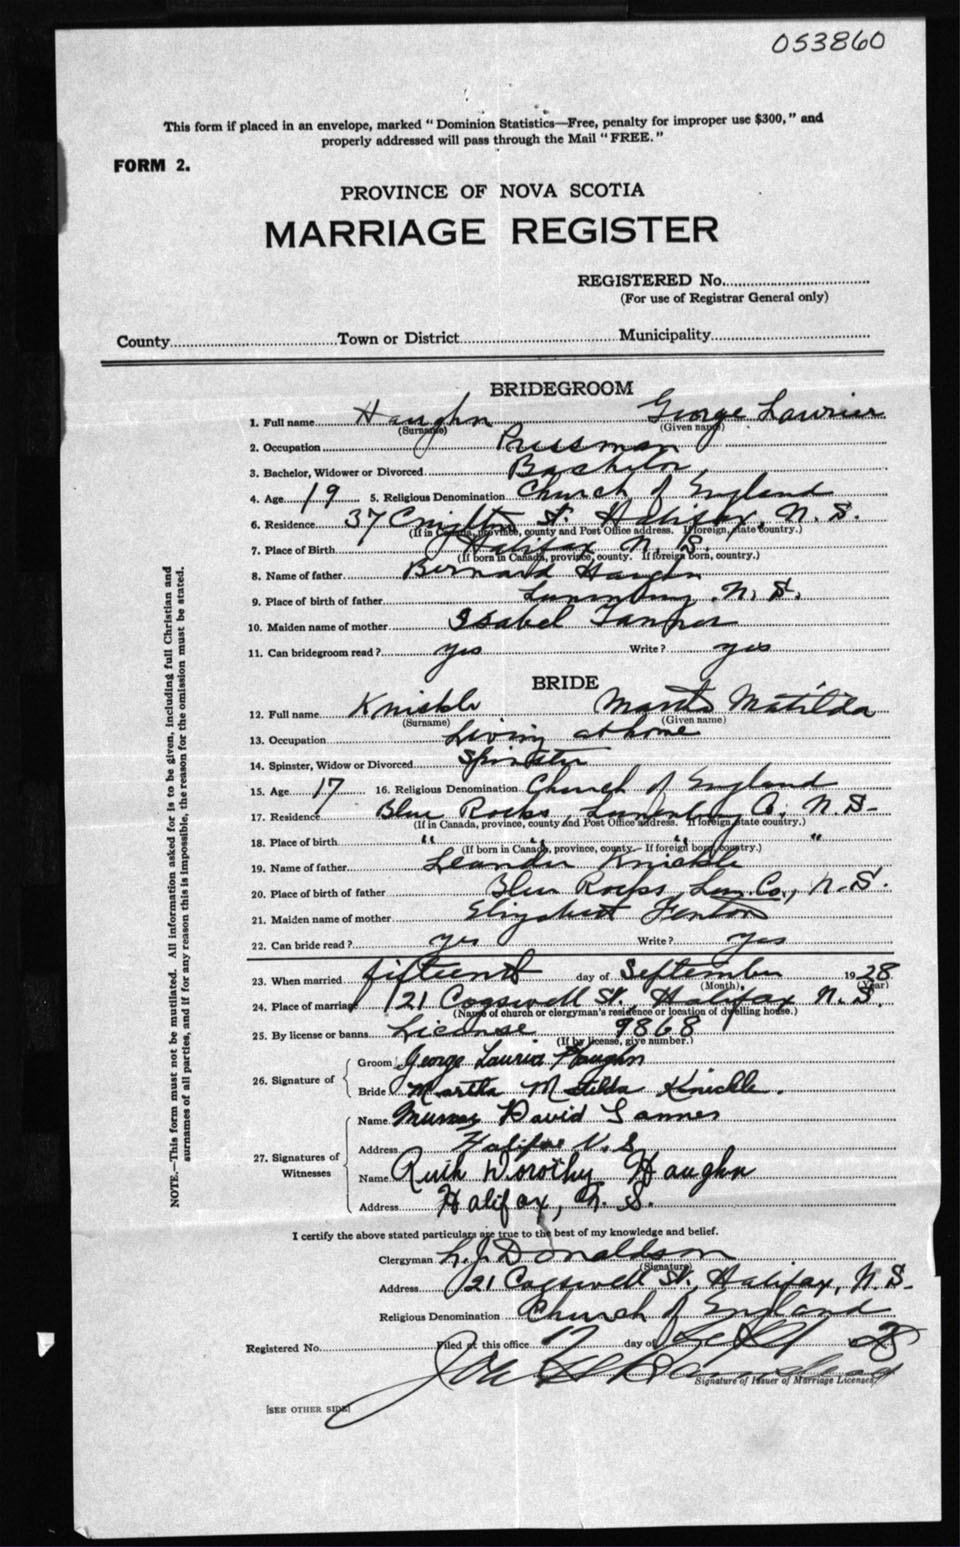 053860
This form if placed in an envelope, marked "Dominion Statistics—Free, penalty for improper use $300," and
properly addressed will pass through the Mail "FREE."
FORM 2.
PROVINCE OF NOVA SCOTIA
MARRIAGE REGISTER
REGISTERED No.
(For use of Registrar General only)
County Town or District Municipality
BRIDEGROOM
1. Full name Haughn George Laurier
(Surname) (Given name)
2. Occupation Pressman
3. Bachelor, Widower or Divorced Bachelor
4. Age 19 5. Religious Denomination Church of England
6. Residence 37 St. Halifax, N. S.
(If in Canada, province, county and Post Office address. If foreign, state country.)
7. Place of Birth Halifax N. S.
(If born in Canada, province, county. If foreign born, country.)
8. Name of father Bernard Haughn
9. Place of birth of father Lunenburg, N. S.
10. Maiden name of mother Isabel Tanner
11. Can bridegroom read? yes Write? yes
BRIDE
12. Full name Knickle Martha Matilda
(Surname) (Given name)
13. Occupation Living at home
14. Spinster, Widow or Divorced Spinster
15. Age 17 16. Religious Denomination Church of England
17. Residence Blue Rocks, Lunenburg Co, N. S-
(If in Canada, province, county and Post Office address. If foreign, state country.)
18. Place of birth " " " "
(If born in Canada, province, county. If foreign born, country.)
19. Name of father Leander Knickle
20. Place of birth of father Blue Rocks, Lun. Co., N. S.
21. Maiden name of mother Elizabeth Fenton
22. Can bride read? yes Write? yes
23. When married fifteenth day of September 1928
(Month), (Year)
24. Place of marriage 121 Cogswell St., Halifax N. S.
(Name of church or clergyman's residence or location of dwelling house.)
25. By license or banns License 9868
(If by license, give number.)
26. Signature of Groom George Laurier Haughn
Bride Martha Matilda Knickle.
27. Signatures of Witnesses Name Murray David Tanner
Address Halifax N. S
Name Ruth Dorothy Haughn
Address Halifax, N. S.
I certify the above stated particulars are true to the best of my knowledge and belief.
Clergyman L. J. Donaldson
(Signature)
Address 121 Cogswell St. Halifax, N. S.
Religious Denomination Church of England
Registered No. Filed at this office 17 day of Sept 1928
Signature of Issuer of Marriage Licenses.
[SEE OTHER SIDE]
NOTE.—This form must not be mutilated. All information asked for is to be given, including full Christian and
surnames of all parties, and if for any reason this is impossible, the reason for the omission must be stated.